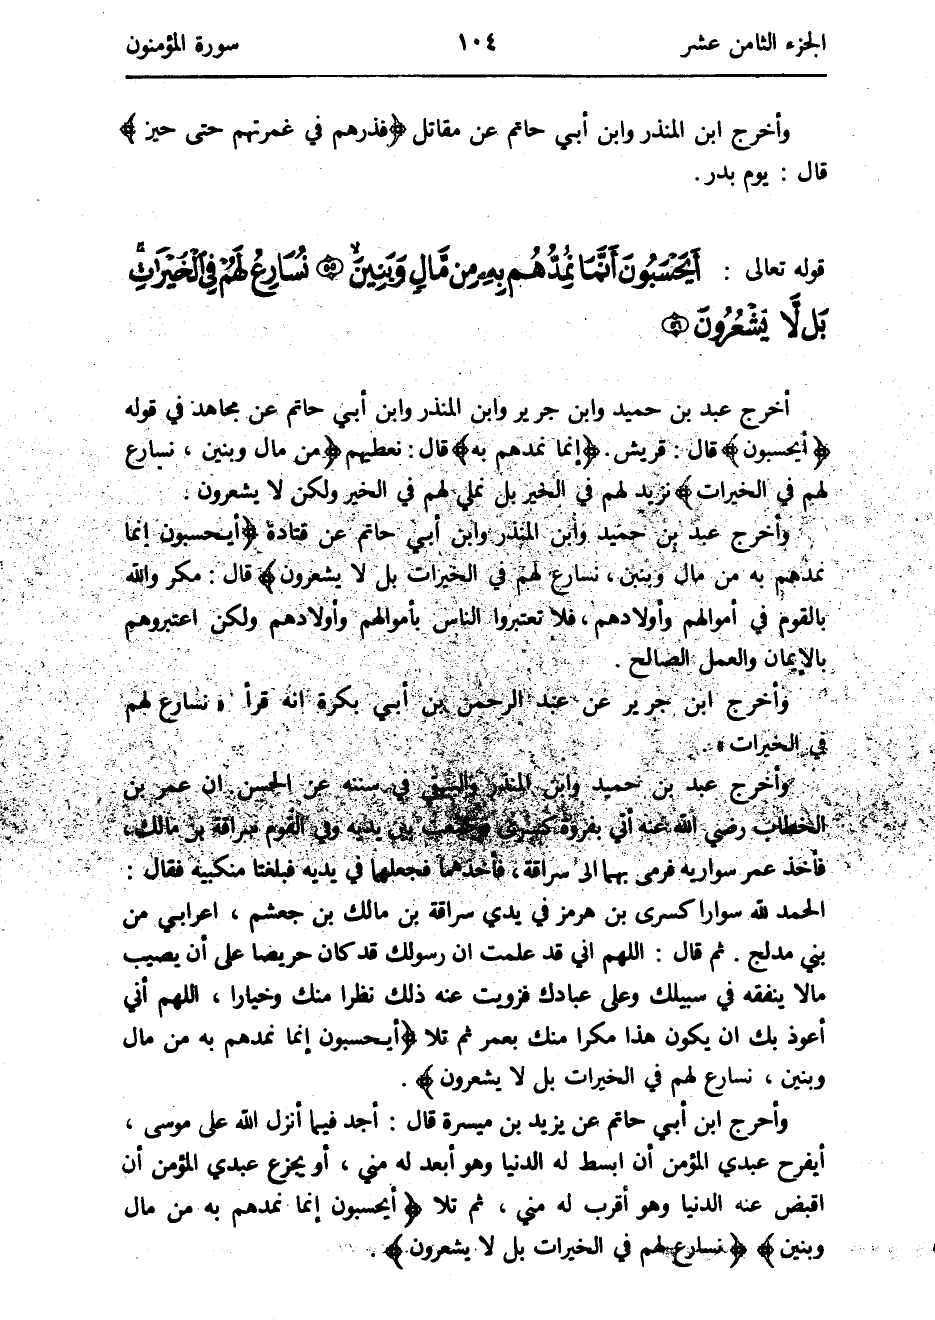 الجزء الثامن عشر ١٠٤ سورة المؤمنون
وأخرج ابن المنذر وابن أبي حاتم عن مقاتل ﴿فذرهم في غمرتهم حتى حيز ﴾
قال : يوم بدر .
قوله تعالى : أَيَحْسَبُونَ أَنَّمَا نُمِدُّهُم بِهِۦ مِن مَّالٍ وَبَنِينَ ۙ ٥٥ نُسَارِعُ لَهُمْ فِي الْخَيْرَاتِ ۚ
بَل لَّا يَشْعُرُونَ ٥٦
أخرج عبد بن حميد وابن جرير وابن المنذر وابن أبي حاتم عن مجاهد في قوله
﴿أيحسبون﴾ قال : قريش . ﴿إنما نمدهم به﴾ قال : نعطيهم ﴿من مال وبنين ، نسارع
لهم في الخيرات﴾ نزيد لهم في الخير بل نملي لهم في الخير ولكن لا يشعرون .
وأخرج عبد بن حميد وابن المنذر وابن أبي حاتم عن قتادة ﴿أيحسبون إنما
نمدهم به من مال وبنين ، نسارع لهم في الخيرات بل لا يشعرون﴾ قال : مكر والله
بالقوم في أموالهم وأولادهم ، فلا تعتبروا الناس بأموالهم وأولادهم ولكن اعتبروهم
بالإيمان والعمل الصالح .
وأخرج ابن جرير عن عبد الرحمن بن أبي بكرة انه قرأ « نسارع لهم
في الخيرات » .
وأخرج عبد بن حميد وابن المنذر والبيهقي في سننه عن الحسن ان عمر بن
الخطاب رضي الله عنه أتي بفروة كسرى فوضعت بين يديه وفي القوم سراقة بن مالك ،
فأخذ عمر سواريه فرمى بهما الى سراقة ، فأخذهما فجعلها في يديه فبلغتا منكبيه فقال :
الحمد لله سوارا كسرى بن هرمز في يدي سراقة بن مالك بن جعشم ، اعرابي من
بني مدلج . ثم قال : اللهم اني قد علمت ان رسولك قد كان حريصا على أن يصيب
مالا ينفقه في سبيلك وعلى عبادك فزويت عنه ذلك نظرا منك وخيارا ، اللهم أني
أعوذ بك ان يكون هذا مكرا منك بعمر ثم تلا ﴿أيحسبون إنما نمدهم به من مال
وبنين ، نسارع لهم في الخيرات بل لا يشعرون﴾ .
وأحرج ابن أبي حاتم عن يزيد بن ميسرة قال : أجد فيما أنزل الله على موسى ،
أيفرح عبدي المؤمن أن ابسط له الدنيا وهو أبعد له مني ، أو يجزع عبدي المؤمن أن
اقبض عنه الدنيا وهو أقرب له مني ، ثم تلا ﴿أيحسبون إنما نمدهم به من مال
وبنين﴾ ﴿نسارع لهم في الخيرات بل لا يشعرون﴾ .